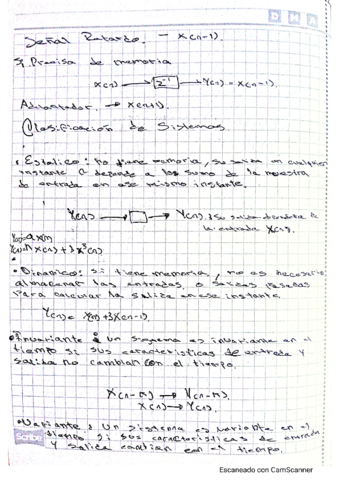 Señal Retardo. - x(n-1).
Si Precisa de memoria
x(n) → [z⁻¹] → y(n) = x(n-1).
Adelantador. → x(n+1).
Clasificación de Sistemas.
• Estatico: No tiene memoria, su salida en cualquier
instante depende a los sumo de la muestra
de entrada en ese mismo instante.
→ [ ] → Y(n). Su salida de
la entrada x(n).
y(n)=a x(n)
y(n)=n x(n) + 3x³(n)
• Dinamico: si tiene memoria, no es necesario
almacenar las entradas, o salidas pasadas
para calcular la salida en ese instante.
y(n) = x(n) + 3x(n-1).
• Invariante: un sistema es invariante en el
tiempo si sus caracteristicas de entrada y
salida no cambian con el tiempo.
x(n-m) → y(n-m).
x(n) → y(n).
• Variante: un sistema es variante en el
tiempo si sus caracteristicas de entrada
y salida cambian con el tiempo.
Scribe
D M A
Escaneado con CamScanner